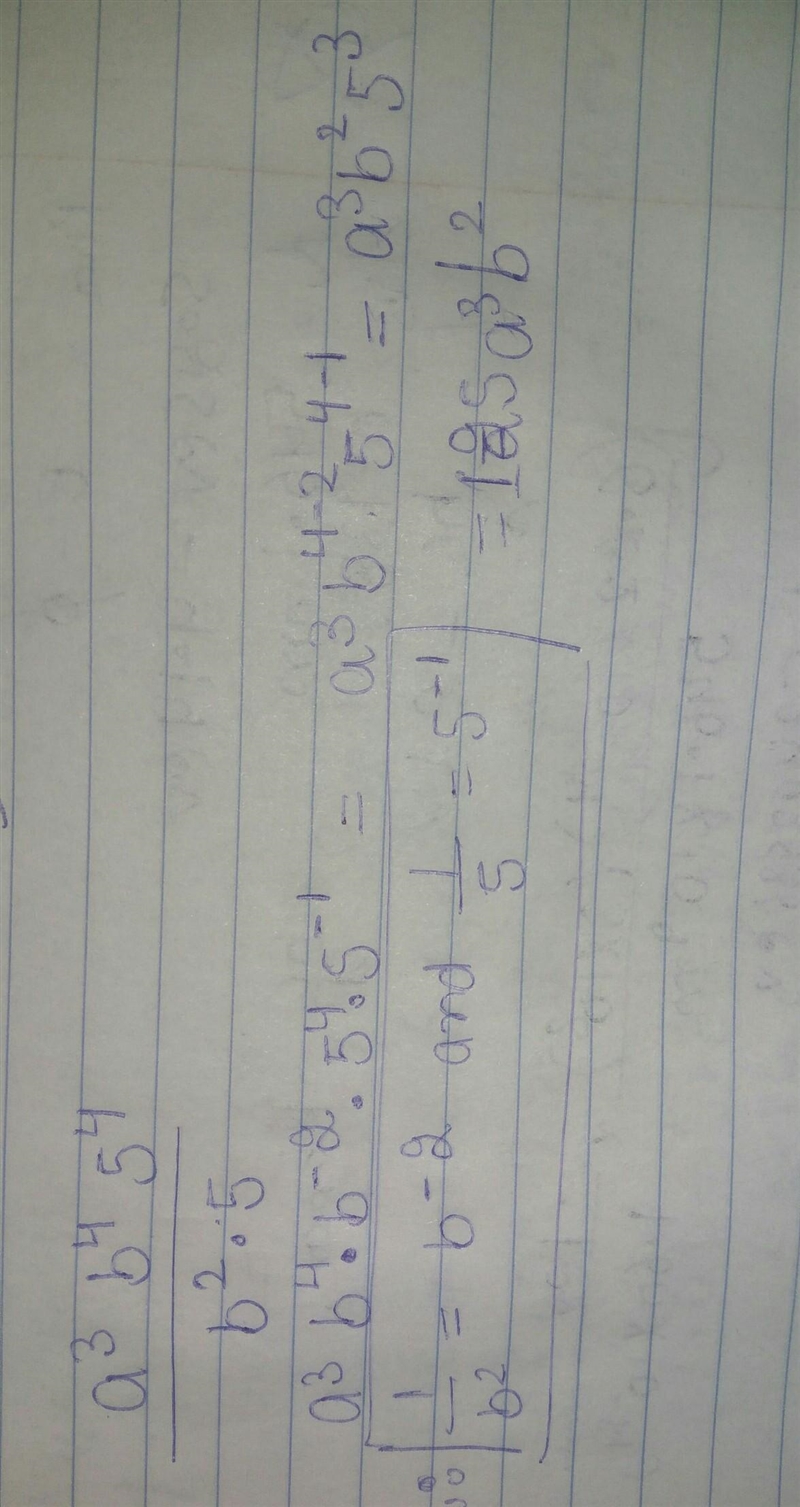 a³ b⁴ 5⁴
b² · 5
a³ b⁴ · b⁻² · 5⁴ · 5⁻¹ = a³ b⁴⁻² 5⁴⁻¹ = a³ b² 5³
∵ 1/b² = b⁻² and 1/5 = 5⁻¹ = 125 a³ b²